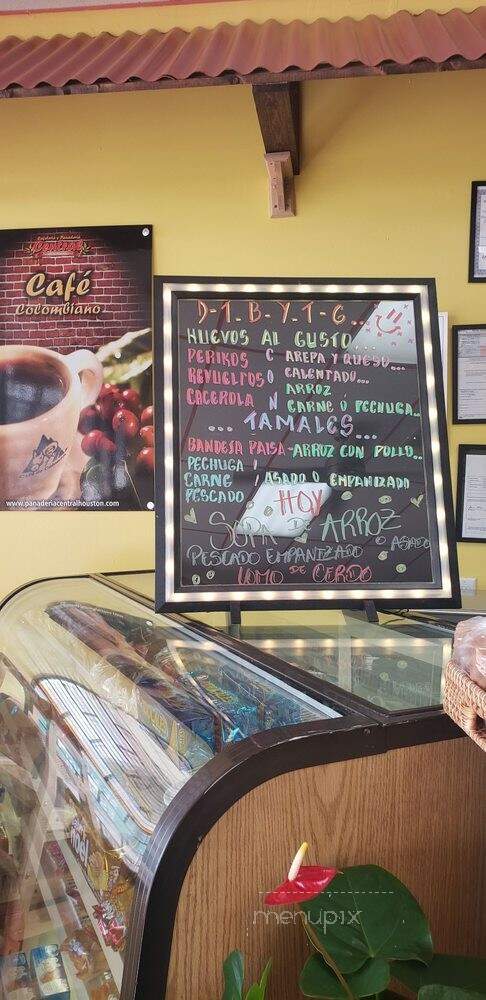 Central
Café
Colombiano
www.panaderiacentralhouston.com
D-T-B-Y-T-G...
HUEVOS AL GUSTO...
PERIKOS C AREPA Y QUESO...
REVUELTOS O CALENTADO...
ARROZ
CACEROLA N CARNE Ó PECHUGA..
... TAMALES...
BANDEJA PAISA - ARROZ CON POLLO...
PECHUGA
CARNE ASADO O EMPANIZADO
PESCADO
HOY
SOPA DE ARROZ
PESCADO EMPANIZADO O ASADO
LOMO DE CERDO
menupix